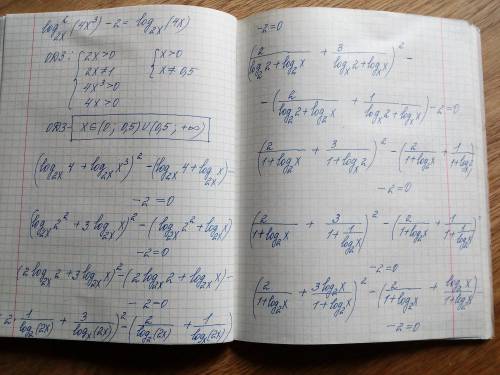 log²₂ₓ(4x³) - 2 = log₂ₓ(4x)
ОДЗ: { 2x>0 { x>0
2x≠1 x≠0,5
4x³>0
4x>0
ОДЗ- x∈(0; 0,5)∪(0,5; +∞)
(log₂ₓ4 + log₂ₓx³)² - (log₂ₓ4 + log₂ₓx) -
-2 = 0
(log₂ₓ2² + 3log₂ₓx)² - (log₂ₓ2² + log₂ₓx) -
-2=0
(2log₂ₓ2 + 3log₂ₓx)² - (2log₂ₓ2 + log₂ₓx) -
-2=0
2· 1/log₂(2x) + 3/logₓ(2x))² - (2/log₂(2x) + 1/logₓ(2x))
-2=0
(2/(log₂2+log₂x) + 3/(logₓ2+logₓx))² -
-(2/(log₂2+log₂x) + 1/(logₓ2+logₓx)) -2=0
(2/(1+log₂x) + 3/(1+logₓ2))² - (2/(1+log₂x) + 1/(1+logₓ2))
-2=0
(2/(1+log₂x) + 3/(1+1/log₂x))² - (2/(1+log₂x) + 1/(1+1/log₂x))
-2=0
(2/(1+log₂x) + 3log₂x/(1+log₂x))² - (2/(1+log₂x) + log₂x/(1+log₂x))
-2=0